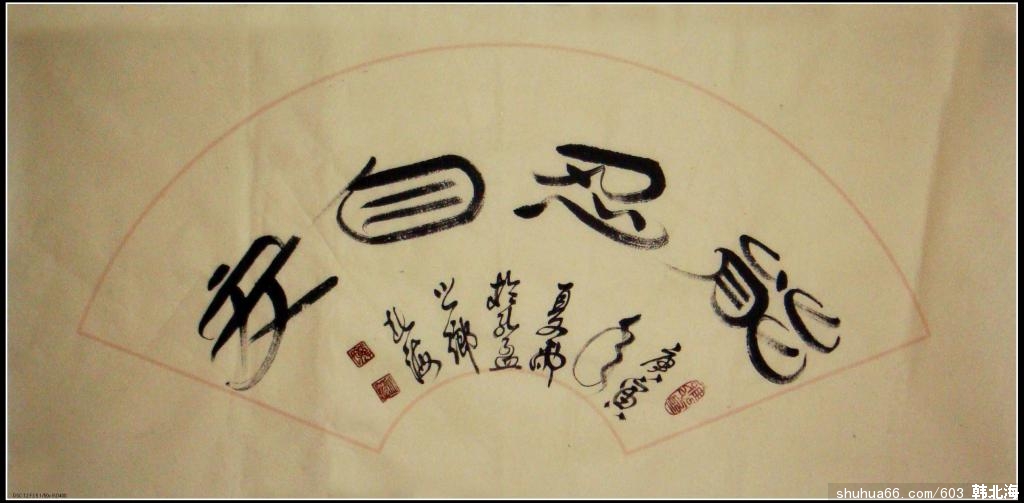 能忍自安
庚寅
年
夏
於孔孟
之鄉
北海
shuhua66.com/603 韩北海